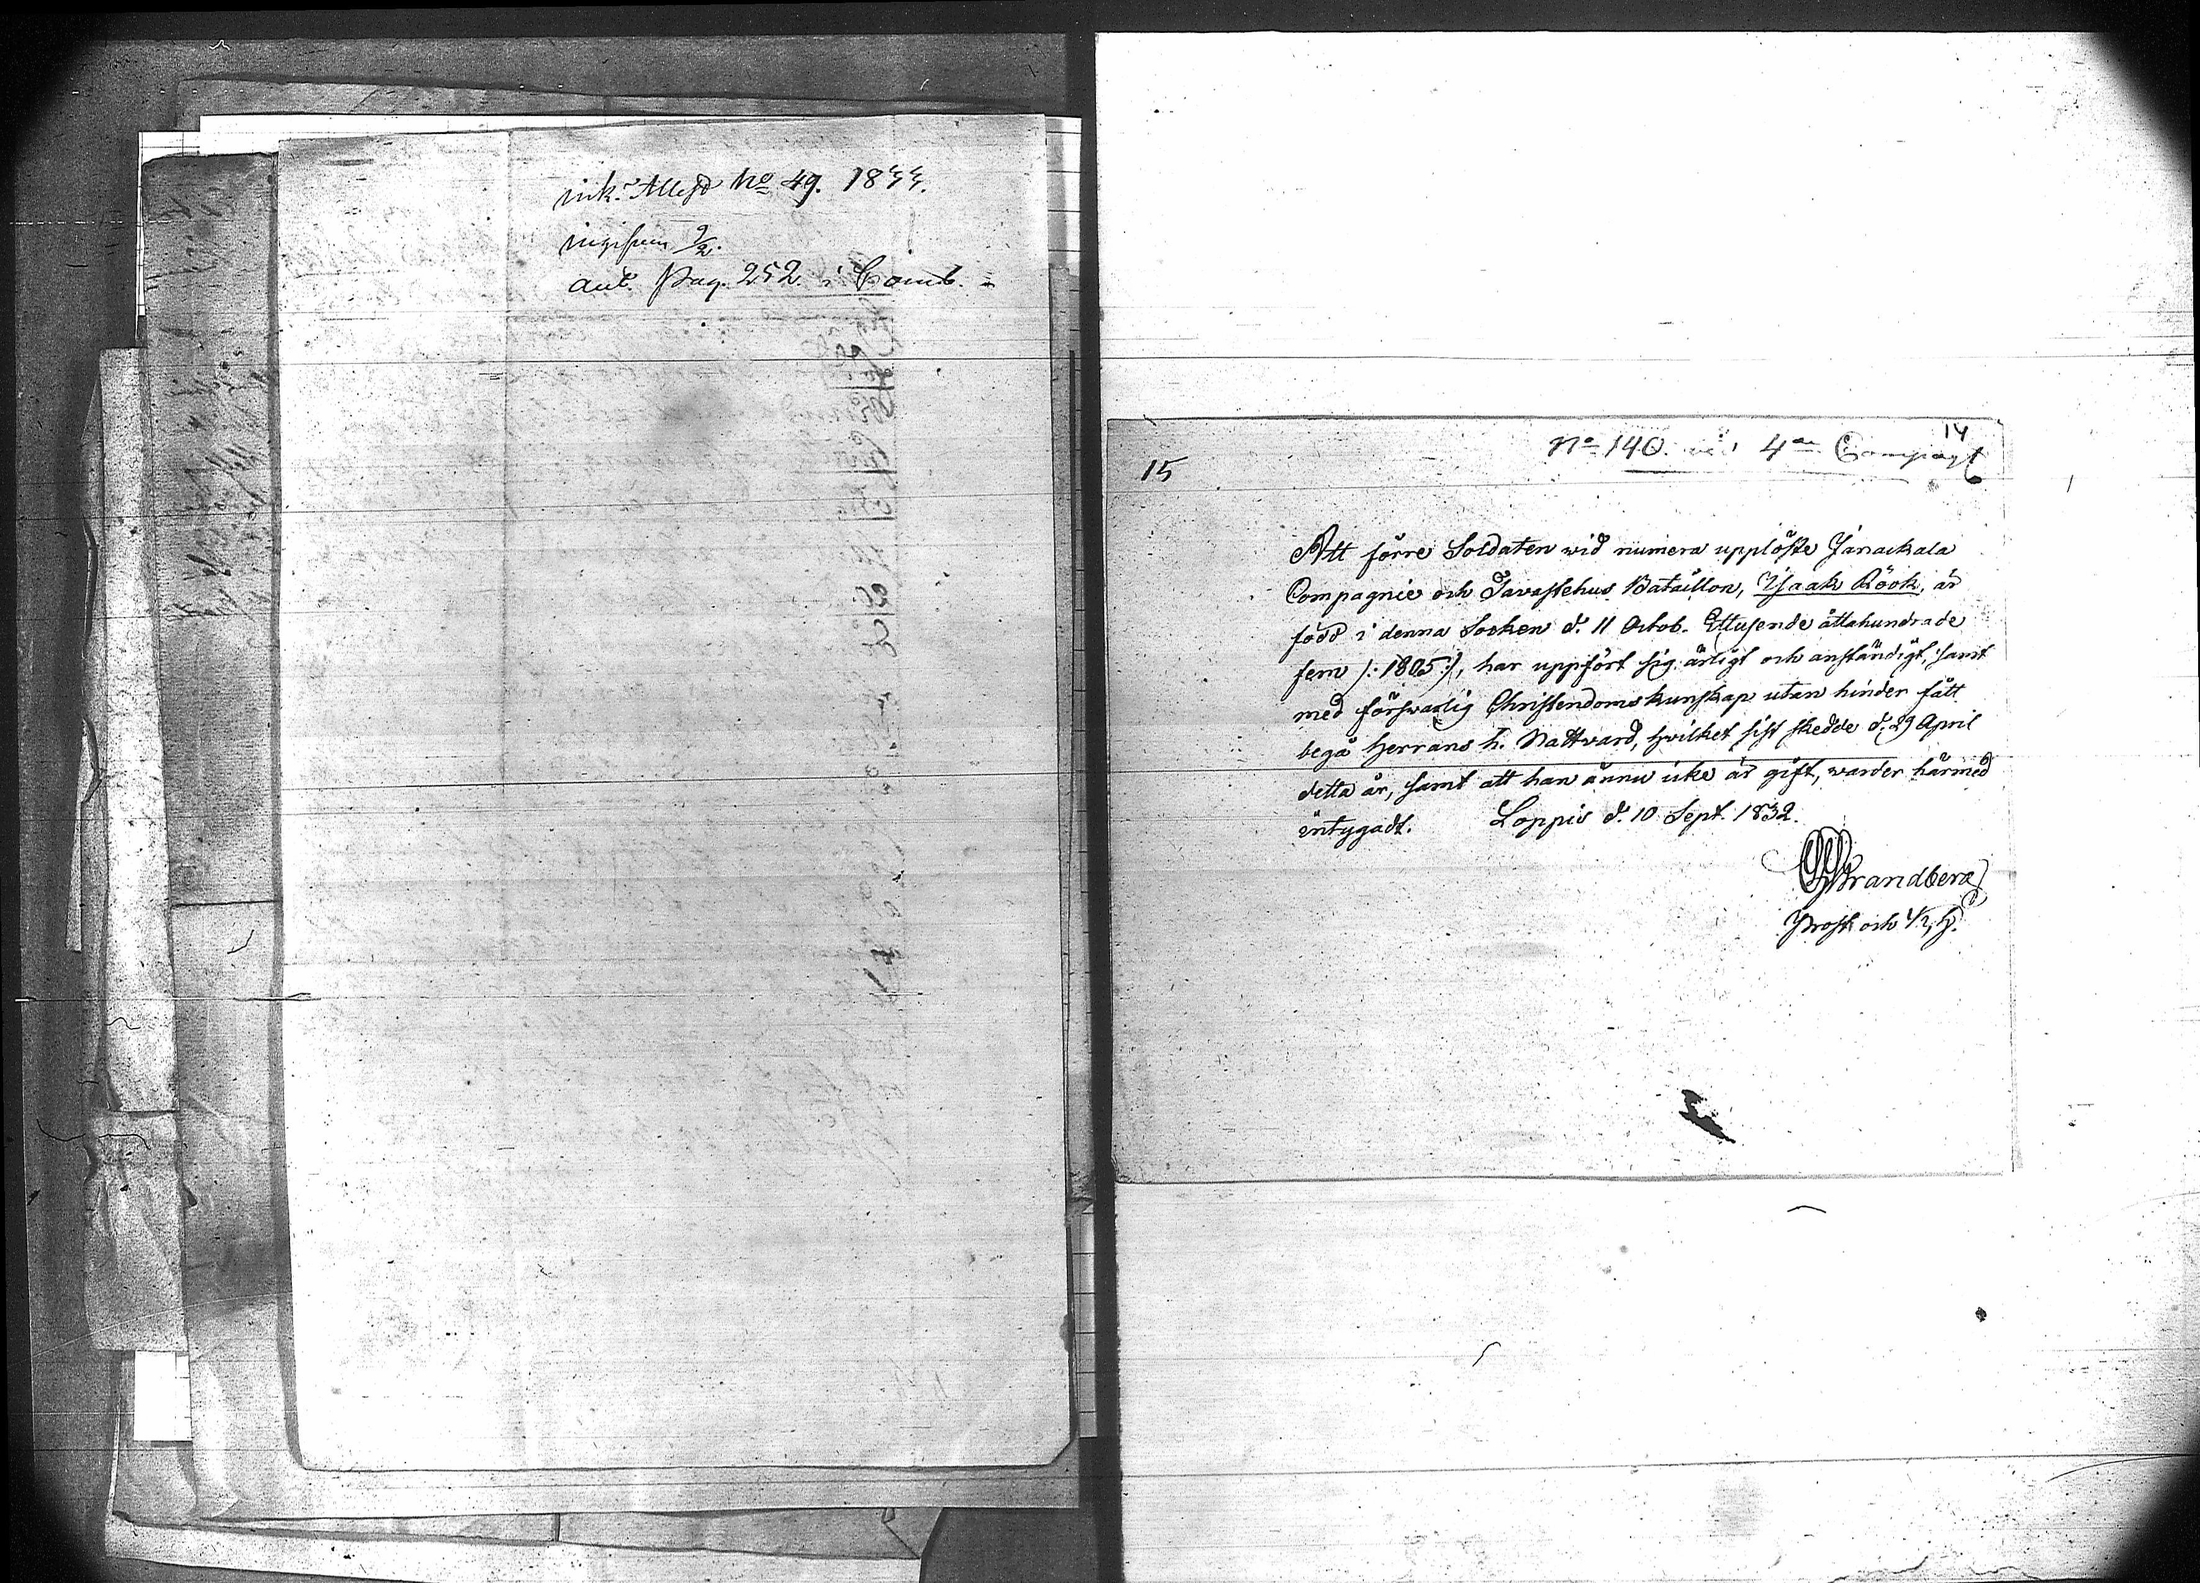 ink. Alleg No 49. 1833.
ingifven 9/2.
ant. Pag. 252. i Comb.
14
No 140. vid 4de Compagt
15
Att förre Soldaten wid numera upplöste Janackala
Compagnie och Tavastehus Bataillon, Isaak Röök, är
född i denna Socken d. 11 Octob. Ettusende åttahundrade
fem /: 1805 :/, har uppfört sig ärligt och anständigt, samt
med förswarlig Christendomskunskap utan hinder fått
begå Herrans h. Nattvard, hvilket sist skedde d. 29 April
detta år, samt att han ännu icke är gift, warder härmed
intygadt. Loppis d. 10 Sept. 1832.
Strandberg
Prost och